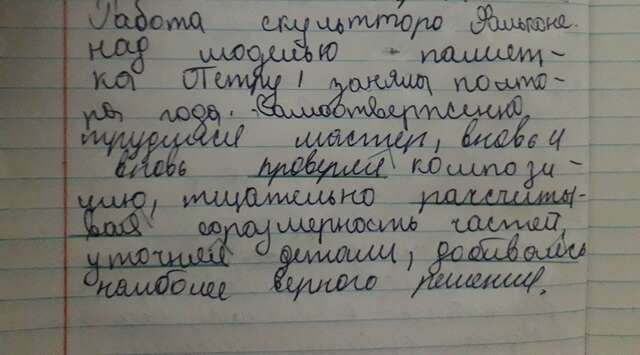 Работа скульттора Фалькона.
над моделью памят-
ка Петру I заняла полто-
ра года. Самоотверженно
трудился мастер, вновь и
вновь проверяя компози-
цию, тщательно рассчиты-
вая соразмерность частей,
уточняя детали, добиваясь
наиболее верного решения.